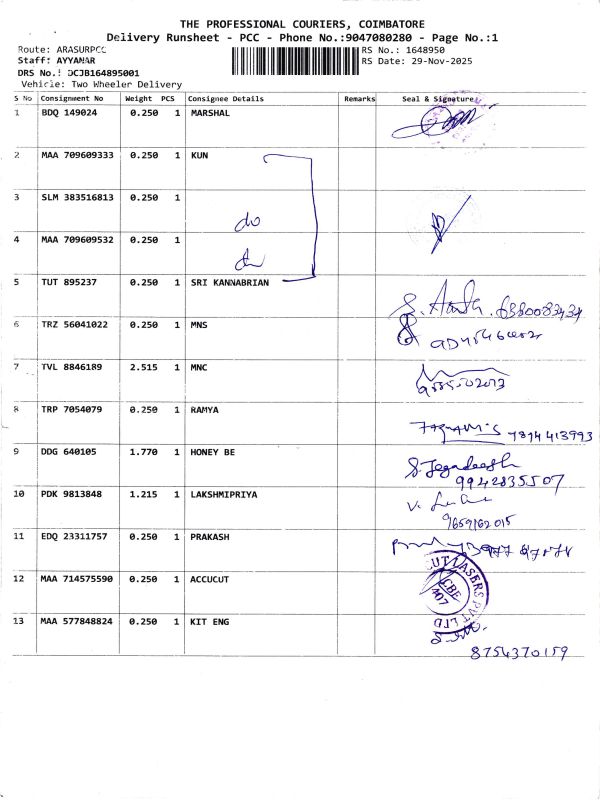 THE PROFESSIONAL COURIERS, COIMBATORE
Delivery Runsheet - PCC - Phone No.:9047080280 - Page No.:1
Route: ARASURPCC
RS No.: 1648950
Staff: AYYANAR
RS Date: 29-Nov-2025
DRS No.: DCJB164895001
Vehicle: Two Wheeler Delivery
S No Consignment No Weight PCS Consignee Details Remarks Seal & Signature
1 BDQ 149024 0.250 1 MARSHAL
2 MAA 709609333 0.250 1 KUN
3 SLM 383516813 0.250 1 do
4 MAA 709609532 0.250 1 do
5 TUT 895237 0.250 1 SRI KANNABRIAN
6 TRZ 56041022 0.250 1 MNS
7 TVL 8846189 2.515 1 MNC
8 TRP 7054079 0.250 1 RAMYA
7814413993
9 DDG 640105 1.770 1 HONEY BE
S. Jegadeesh
9942835507
10 PDK 9813848 1.215 1 LAKSHMIPRIYA
9659162015
11 EDQ 23311757 0.250 1 PRAKASH
12 MAA 714575590 0.250 1 ACCUCUT
CUT LASERS PVT LTD
CBE
407
13 MAA 577848824 0.250 1 KIT ENG
8754370159